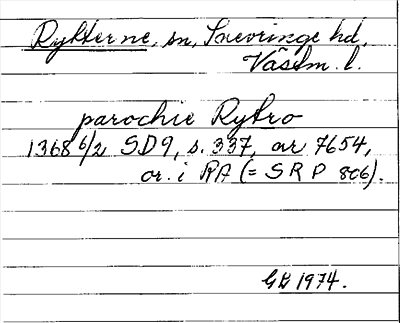 Rytterne, sn, Snevringe hd,
Västm. l.
parochie Rytro
1368 6/2 SD 9, s. 337, ar 7654,
or. i RA (= SRP 806).
GB 1974.